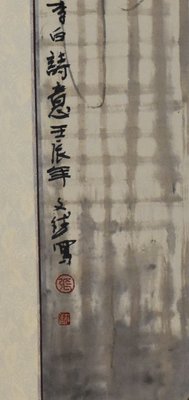 李白詩意壬辰年文绪寫
張